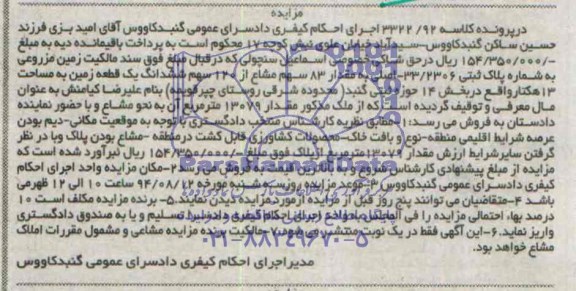 مزایده
درپرونده کلاسه ۹۲/ ۳۳۲۲ اجرای احکام کیفری دادسرای عمومی گنبدکاووس آقای امید بزی فرزند
حسین ساکن گنبدکاووس-سیدآباد خیابان علوی نبش کوچه ۱۷ محکوم است به پرداخت باقیمانده دیه به مبلغ
۱۵۴/۳۵۰/۰۰۰/- ریال درحق شاکی موسی اسماعیل سنچولی که در قبال مبلغ فوق سند مالکیت زمین مزروعی
به شماره پلاک ثبتی ۳۳/۲۳۰۶- اصلی به مقدار ۸۳ سهم مشاع از ۱۲۰ سهم ششدانگ یک قطعه زمین به مساحت
۱۳هکتار واقع در بخش ۱۴ حوزه ثبتی گنبد محدوده شرقی روستای چپرقویمه) بنام علیرضا کیامنش به عنوان
مال معرفی و توقیف گردیده است که از ملک مذکور مقدار ۱۳۰۷۹ مترمربع آن به نحو مشاع و با حضور نماینده
دادستان به فروش می رسد:۱- مطابق نظریه کارشناس منتخب دادگستری با توجه به موقعیت مکانی-دیم بودن
عرصه شرایط اقلیمی منطقه-نوع و بافت خاک-محصولات کشاورزی قابل کشت در منطقه -مشاع بودن پلاک و با در نظر
گرفتن سایر شرایط ارزش مقدار ۱۳۰۷۹ مترمربع از پلاک فوق مبلغ ۱۵۴/۳۵۰/۰۰۰/- ریال برآورد شده است که
مزایده از مبلغ پیشنهادی کارشناس شروع و به بالاترین قیمت به فروش می رسد ۲-مکان مزایده واحد اجرای احکام
کیفری دادسرای عمومی گنبدکاووس ۳-موعد مزایده روز سه شنبه مورخه ۹۴/۰۸/۱۲ ساعت ۱۰ الی ۱۲ ظهر می
باشد ۴-متقاضیان می توانند پنج روز قبل از مزایده از مورد مزایده دیدن نمایند ۵- برنده مزایده مکلف است ۱۰
درصد بهاء احتمالی مزایده را فی المجلس به واحد اجرای احکام کیفری دادسرا تسلیم و یا به صندوق دادگستری
واریز نماید.۶-این آگهی فقط در یک نوبت منتشر می شود ۷-مالکیت برنده مزایده مشاعی و مشمول مقررات املاک
مشاع خواهد بود.
مدیر اجرای احکام کیفری دادسرای عمومی گنبدکاووس
ParsNamadData
۰۲۱-۸۸۳۴۹۶۷۰-۵